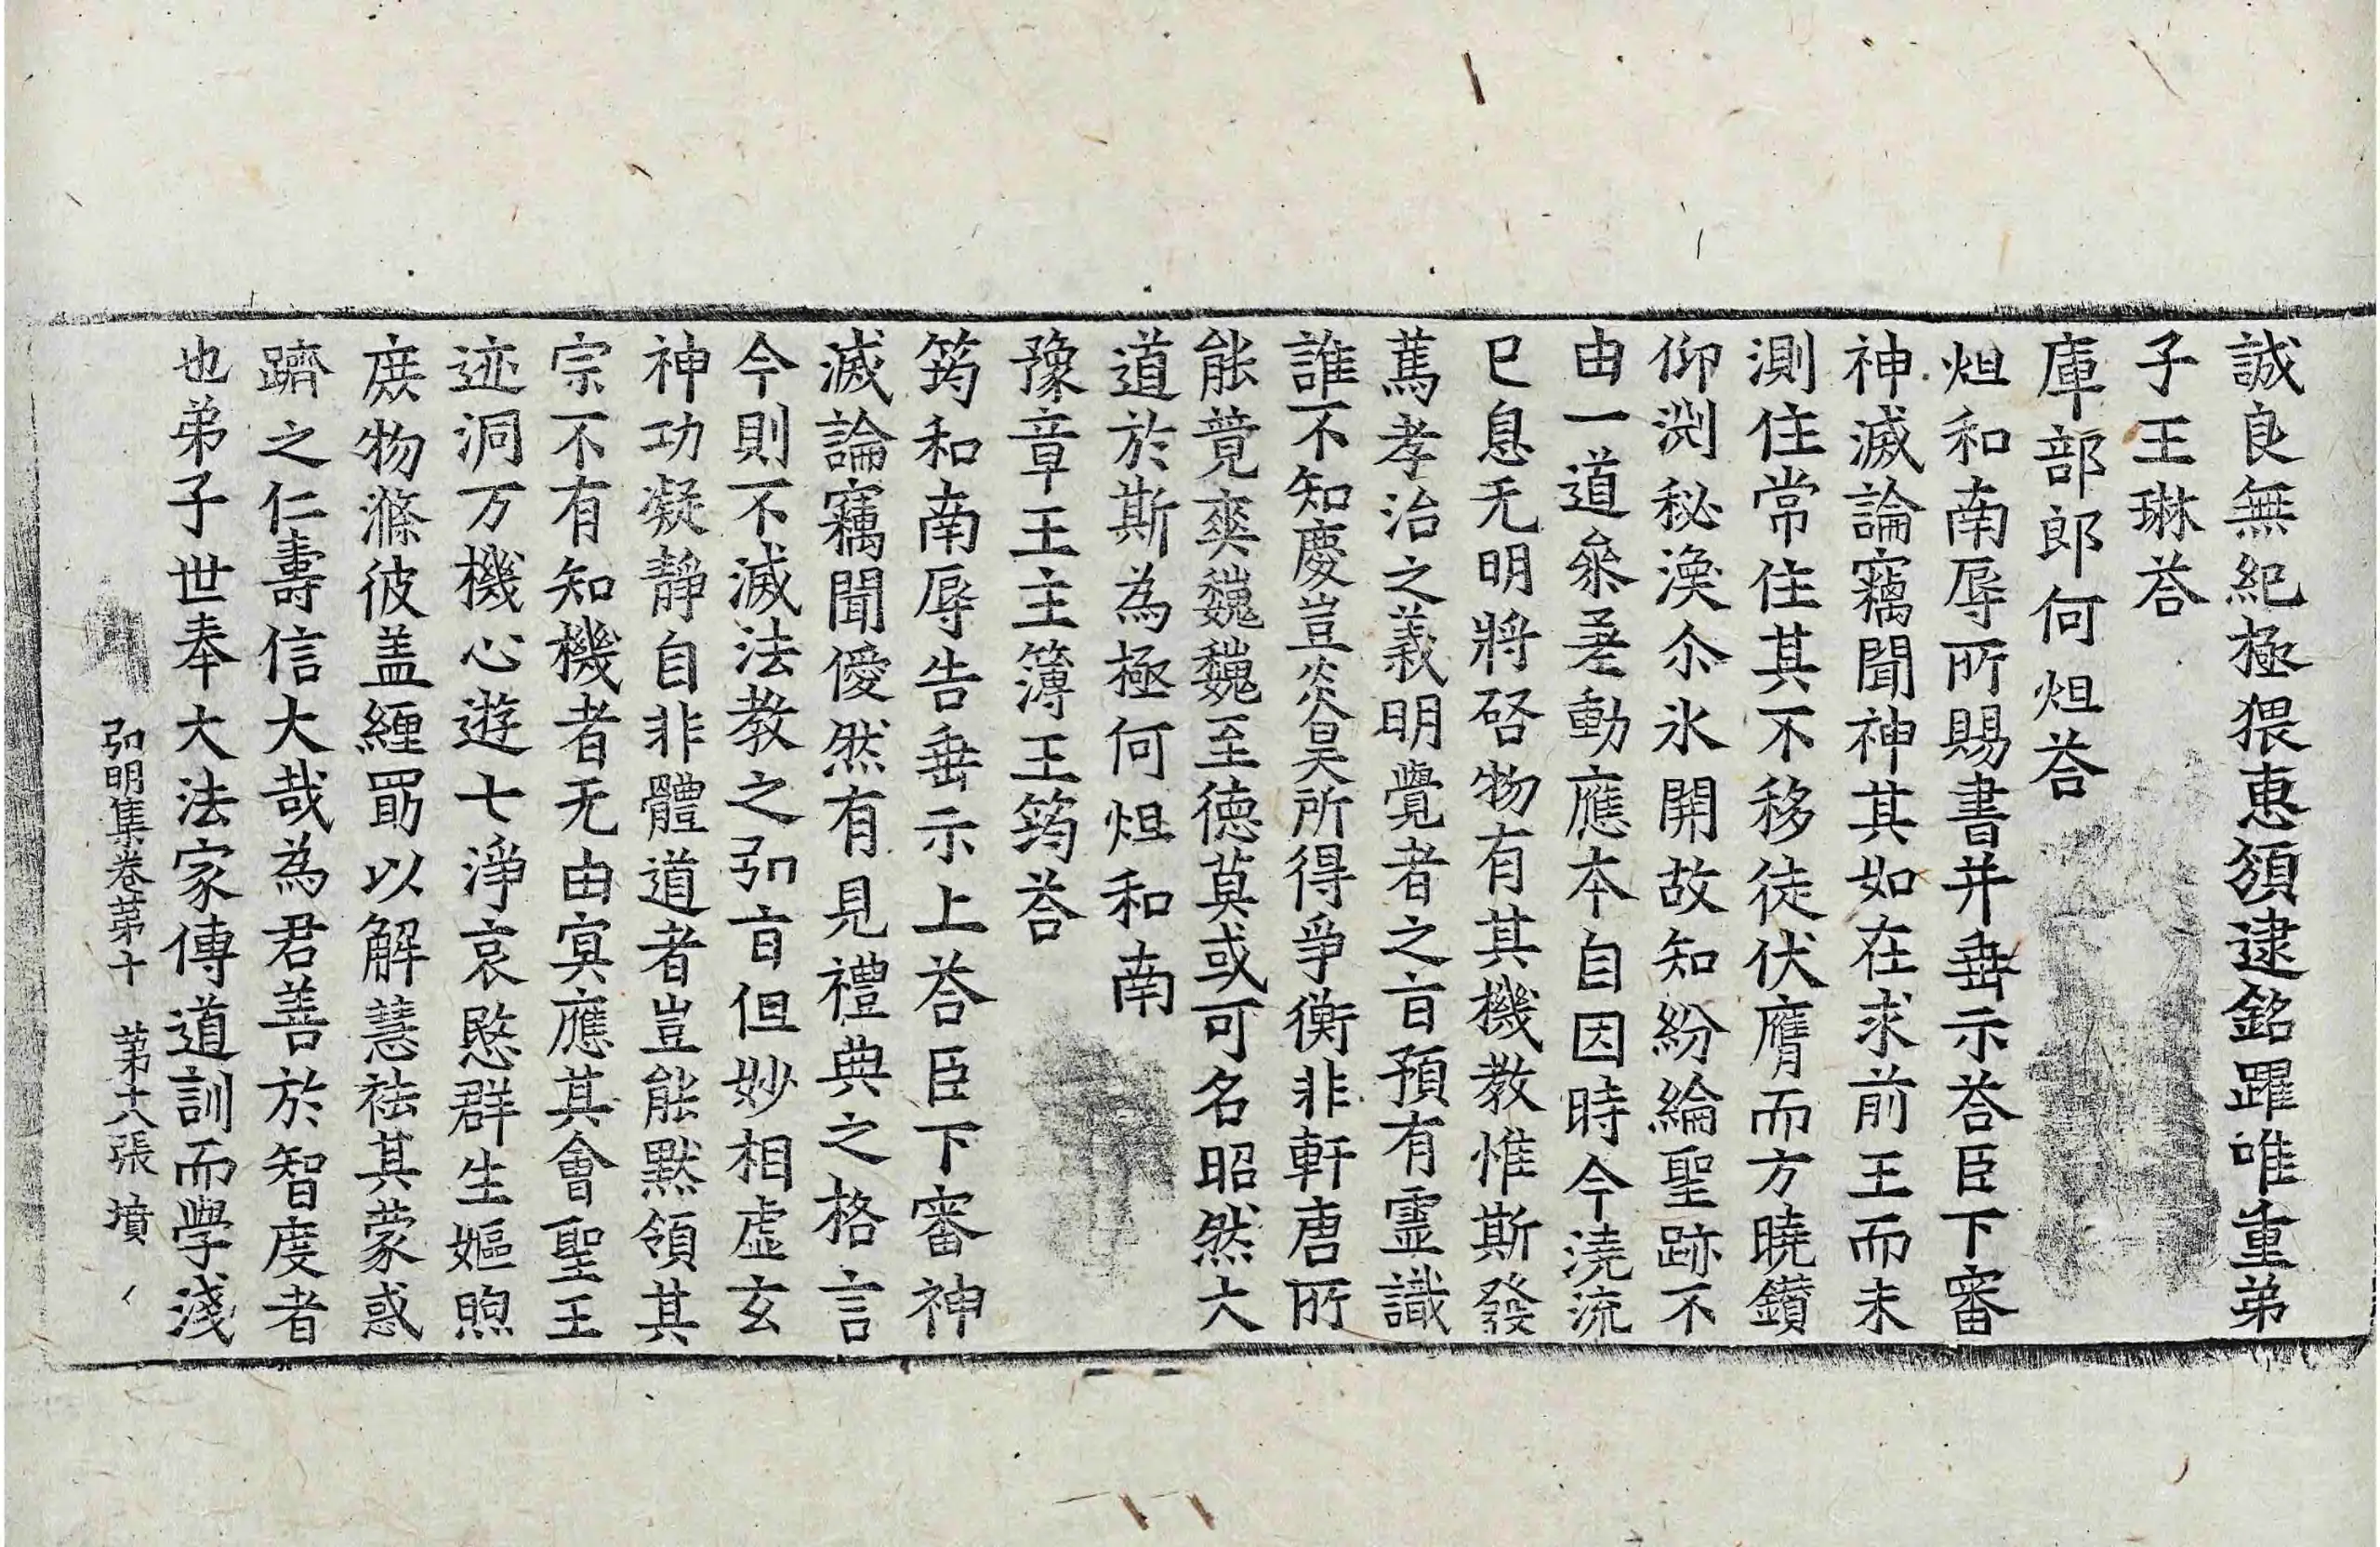 誠良無紀極猥惠頒逮銘躍唯重弟
子王琳荅
庫部郎何炟荅
炟和南辱所賜書并垂示荅臣下審
神滅論竊聞神其如在求前王而未
測住常住其不移徒伏膺而方曉鑽
仰渕秘渙尒氷開故知紛綸聖跡不
由一道叅差動應本自因時今澆流
已息无明將啓物有其機教惟斯發
蔫孝治之義明覺者之盲預有霊識
誰不知慶豈炎昊所得爭衡非軒唐所
能競爽巍巍至徳莫或可名昭然大
道於斯為極何炟和南
豫章王主簿王筠荅
筠和南辱告垂示上荅臣下審神
滅論竊聞僾然有見禮典之格言
今則不滅法教之弘盲但妙相虚玄
神功凝靜自非體道者豈能黙領其
宗不有知機者无由冥應其會聖王
迹洞万機心遊七淨哀愍群生嫗煦
庶物滌彼盖纏罰以解慧袪其蒙惑
躋之仁壽信大哉為君善於智度者
也弟子世奉大法家傳道訓而學淺
弘明集卷苐十 苐十八張 墳